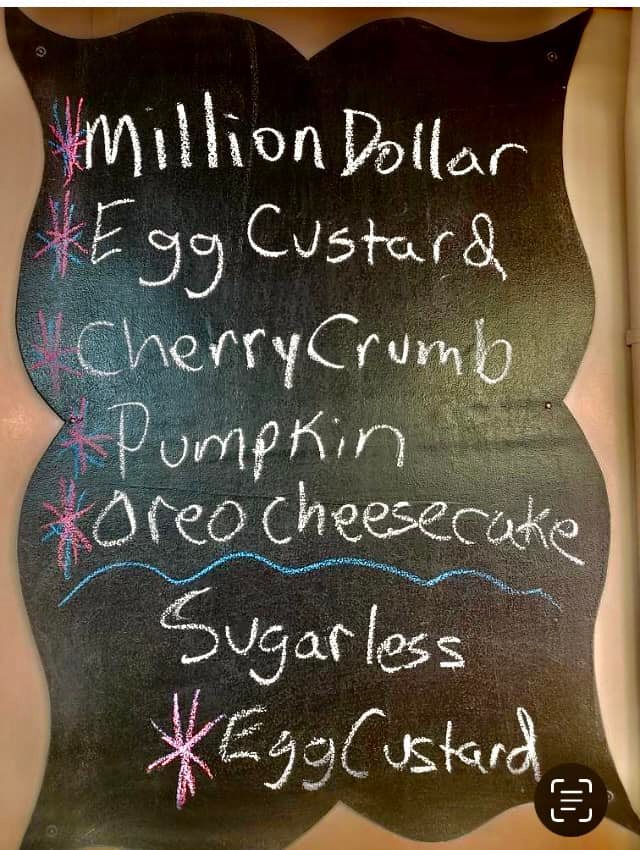 Million Dollar
Egg Custard
Cherry Crumb
Pumpkin
Oreo Cheesecake
Sugarless
Egg Custard